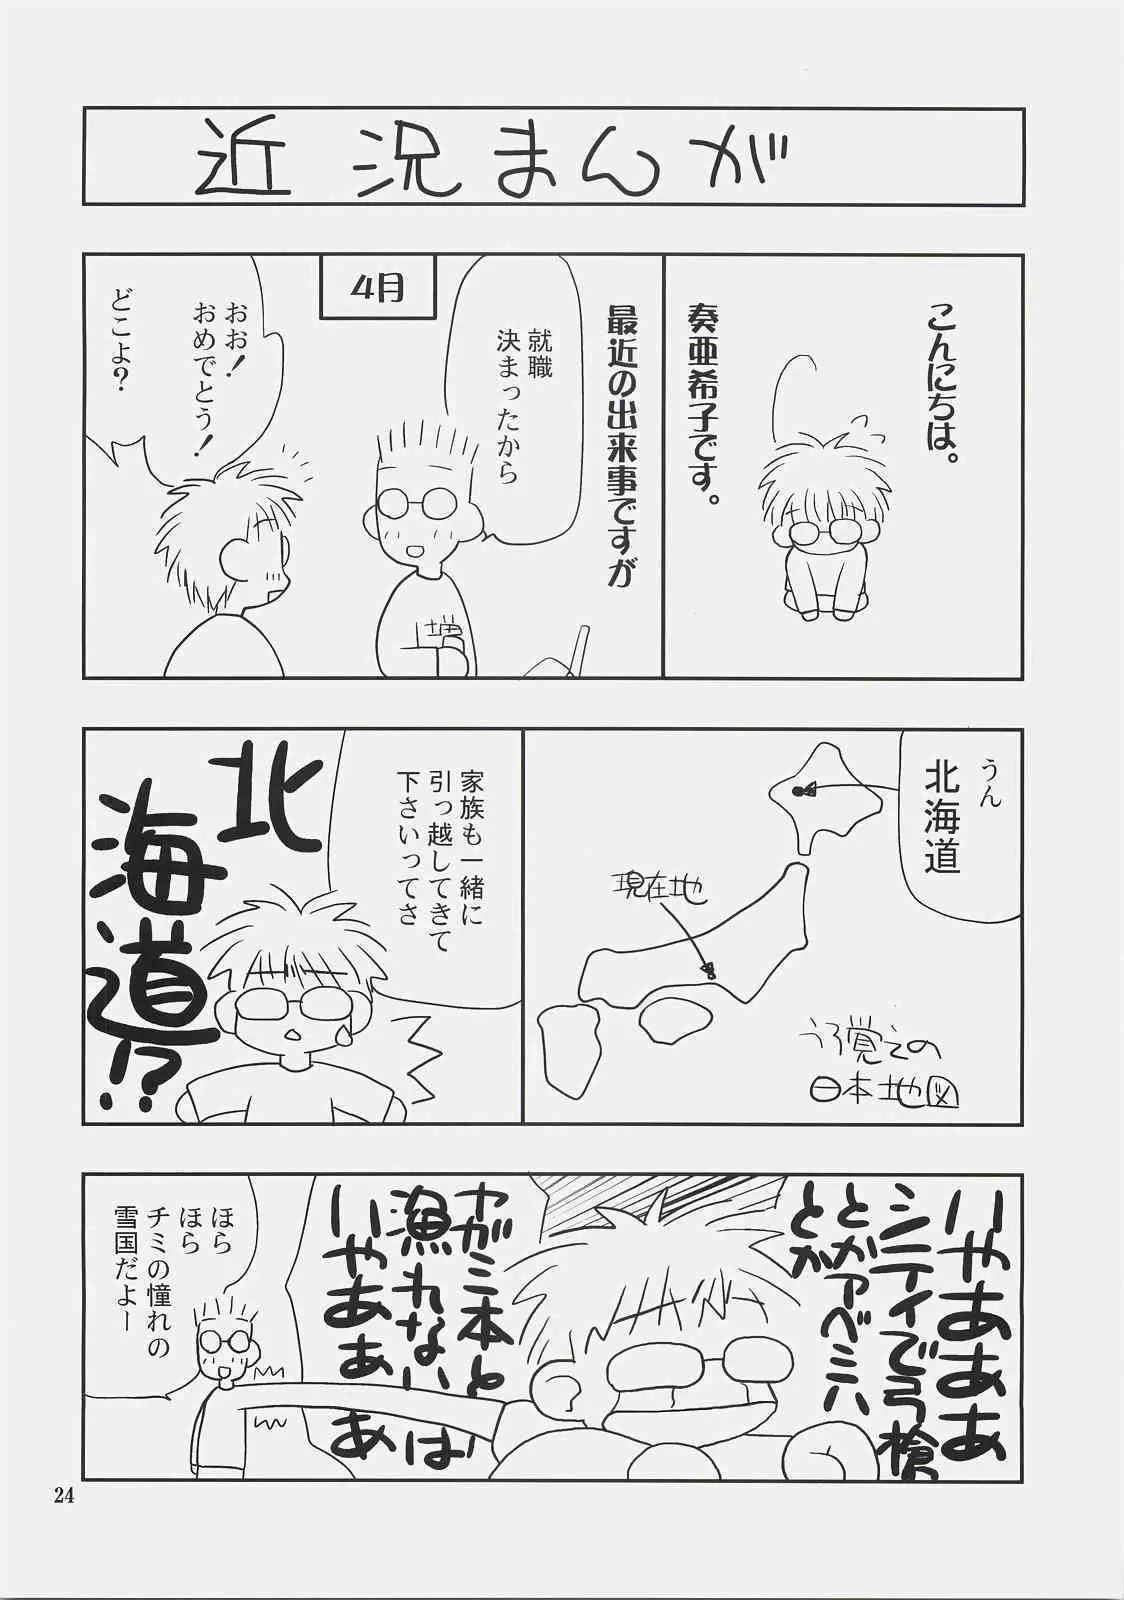 近況まんが
こんにちは。
奏亜希子です。
最近の出来事ですが
4月
就職
決まったから
おお!
おめでとう!
どこよ?
うん
北海道
現在地
うろ覚えの
日本地図
家族も一緒に
引っ越してきて
下さいってさ
北
海道!?
いやあああ
シティで弓槍
とかアベミハ
とか
ヤガミ本と
漁れない
いやあああ
ほら
ほら
チミの憧れの
雪国だよー
24